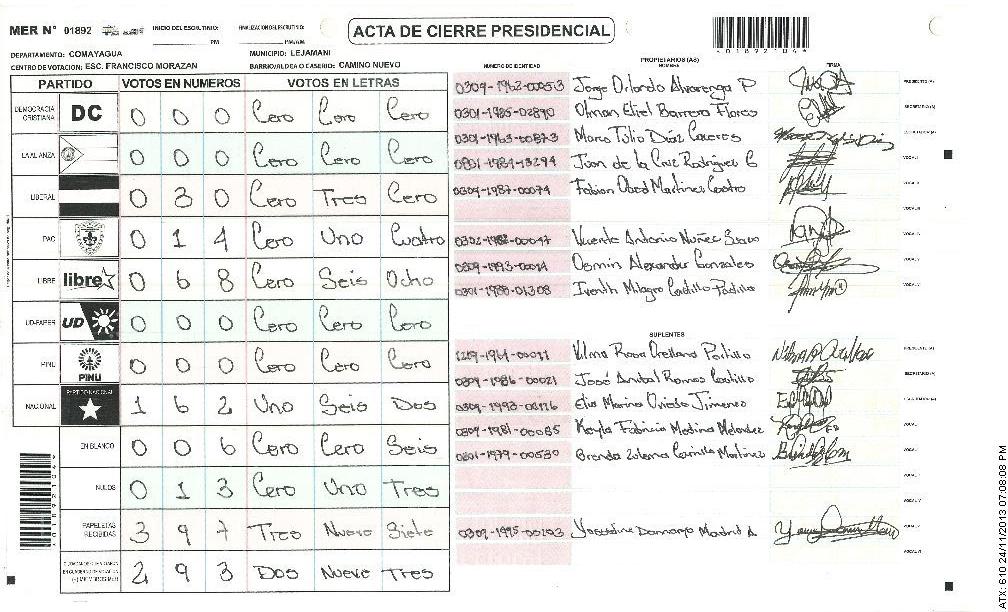 MER N° 01892 INICIO DEL ESCRUTINIO: PM FINALIZACION DEL ESCRUTINIO: PM/AM ACTA DE CIERRE PRESIDENCIAL
DEPARTAMENTO: COMAYAGUA MUNICIPIO: LEJAMANI
CENTRO DE VOTACION: ESC. FRANCISCO MORAZAN BARRIO/ALDEA O CASERIO: CAMINO NUEVO
PARTIDO VOTOS EN NUMEROS VOTOS EN LETRAS
DEMOCRACIA CRISTIANA DC 0 0 0 Cero Cero Cero
LA ALIANZA 0 0 0 Cero Cero Cero
LIBERAL 0 3 0 Cero Tres Cero
PAC 0 1 4 Cero Uno Cuatro
LIBRE libre 0 6 8 Cero Seis Ocho
UD-FAPER UD 0 0 0 Cero Cero Cero
PINU PINU 0 0 0 Cero Cero Cero
NACIONAL PARTIDO NACIONAL 1 6 2 Uno Seis Dos
EN BLANCO 0 0 6 Cero Cero Seis
NULOS 0 1 3 Cero Uno Tres
PAPELETAS RECIBIDAS 3 9 7 Tres Nueve Siete
2 9 3 Dos Nueve Tres
NUMERO DE IDENTIDAD PROPIETARIOS (AS) NOMBRE FIRMA
0309-1962-00053 Jorge Orlando Alvarenga P
0301-1985-02890 Olman Eliel Barrera Flores
0301-1963-00873 Marco Tulio Díaz Caceres
0801-1984-13294 Juan de la Cruz Rodriguez C
0309-1987-00074 Fabian Obed Martinez Castro
Vicente Antonio Nuñez
Osmin Alexander Gonzales
0301-1988-01308 Iveth Milagro Castillo Padilla
SUPLENTES
Vilma Rosa Orellana Portillo
0309-1986-00021 José Anibal Ramos Castillo
Elia Marina Oviedo Jimenez
0309-1981-00085 Keyla Fabricia Medina Melendez
0801-1979-00530 Brenda Zulema Carrillo Martinez
Yaqueline Damary Madrid A
ATX: 610 24/11/2013 07:08:08 PM